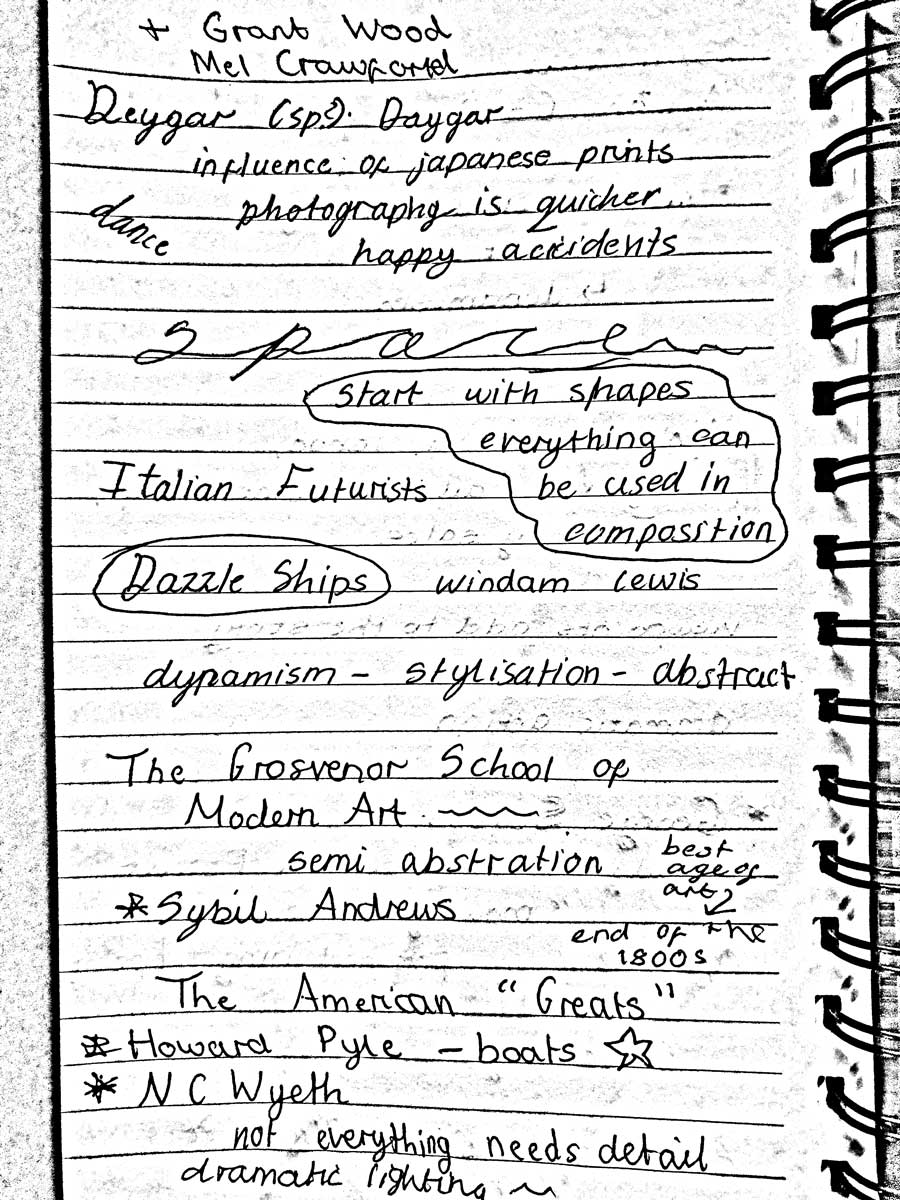 + Grant Wood
Mel Crawford
Deygar (sp?). Daygar
influence of japanese prints
dance
photography is quicker...
happy accidents
Space
start with shapes
everything can
be used in
composition
Italian Futurists
Dazzle Ships windam lewis
dynamism - stylisation - abstract
The Grosvenor School of
Modern Art
semi abstration
best
age of
art?
* Sybil Andrews
end of the
1800s
The American "Greats"
* Howard Pyle - boats ☆
* N C Wyeth
not everything needs detail
dramatic lighting ~